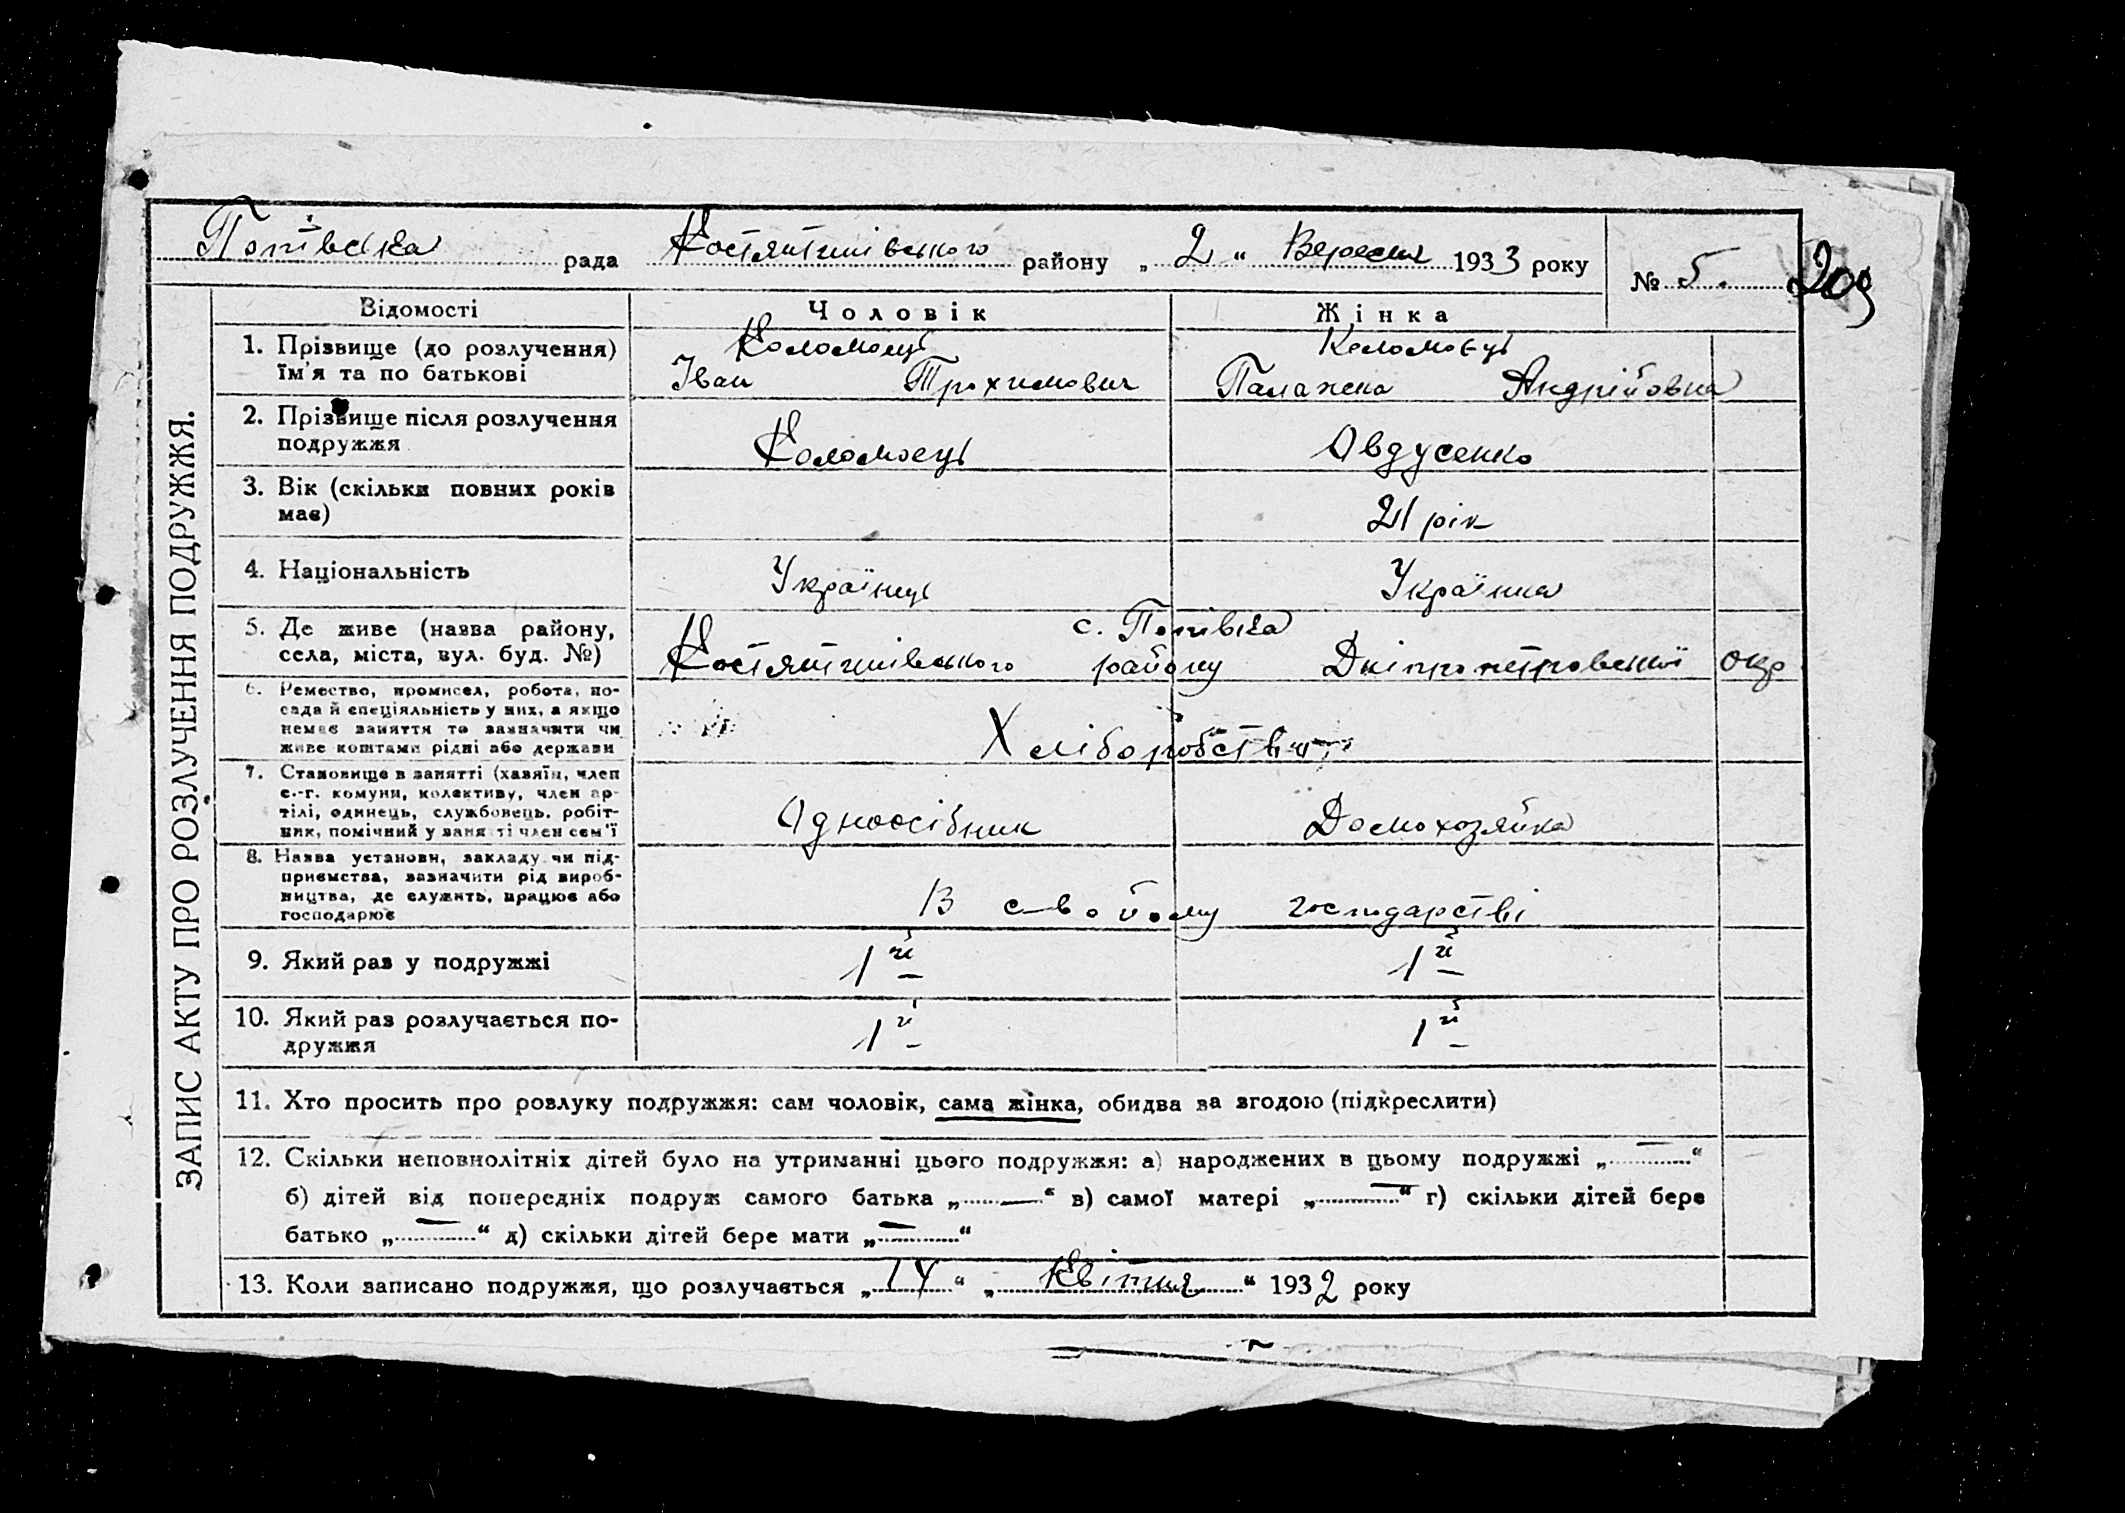 Попівська рада Костянтинівського району „2“ Вересня 1933 року
№ 5. 209
ЗАПИС АКТУ ПРО РОЗЛУЧЕННЯ ПОДРУЖЖЯ.
Відомості Чоловік Жінка
1. Прізвище (до розлучення) Коломоець Коломоєць
ім'я та по батькові Іван Трохимович Палажка Андрійовна
2. Прізвище після розлучення
подружжя Коломоець Овдусенко
3. Вік (скільки повних років
має) 21 рік
4. Національність Українець Українка
5. Де живе (назва району, с. Попівка
села, міста, вул. буд. №) Костянтинівського району Дніпропетровської окр
6. Ремество, промисел, робота, по-
сада й спеціяльність у них, а якщо
немає заняття то зазначити чи Хліборобство
живе коштами рідні або держави
7. Становище в занятті (хазяїн, член
с.-г. комуни, колективу, член ар-
тілі, одинець, службовець, робіт- Одноосібник Домохозяйка
ник, помічний у занятті член сем'ї
8. Назва установи, закладу чи під-
приємства, зазначити рід вироб-
ництва, де служить, працює або В свойому господарстві
господарює
9. Який раз у подружжі 1й 1й
10. Який раз розлучається по- 1й 1й
дружжя
11. Хто просить про розлуку подружжя: сам чоловік, сама жінка, обидва за згодою (підкреслити)
12. Скільки неповнолітніх дітей було на утриманні цього подружжя: а) народжених в цьому подружжі „—“
б) дітей від попередніх подруж самого батька „—“ в) самої матері „—“ г) скільки дітей бере
батько „—“ д) скільки дітей бере мати „—“
13. Коли записано подружжя, що розлучається „14“ „Квітня“ 1932 року